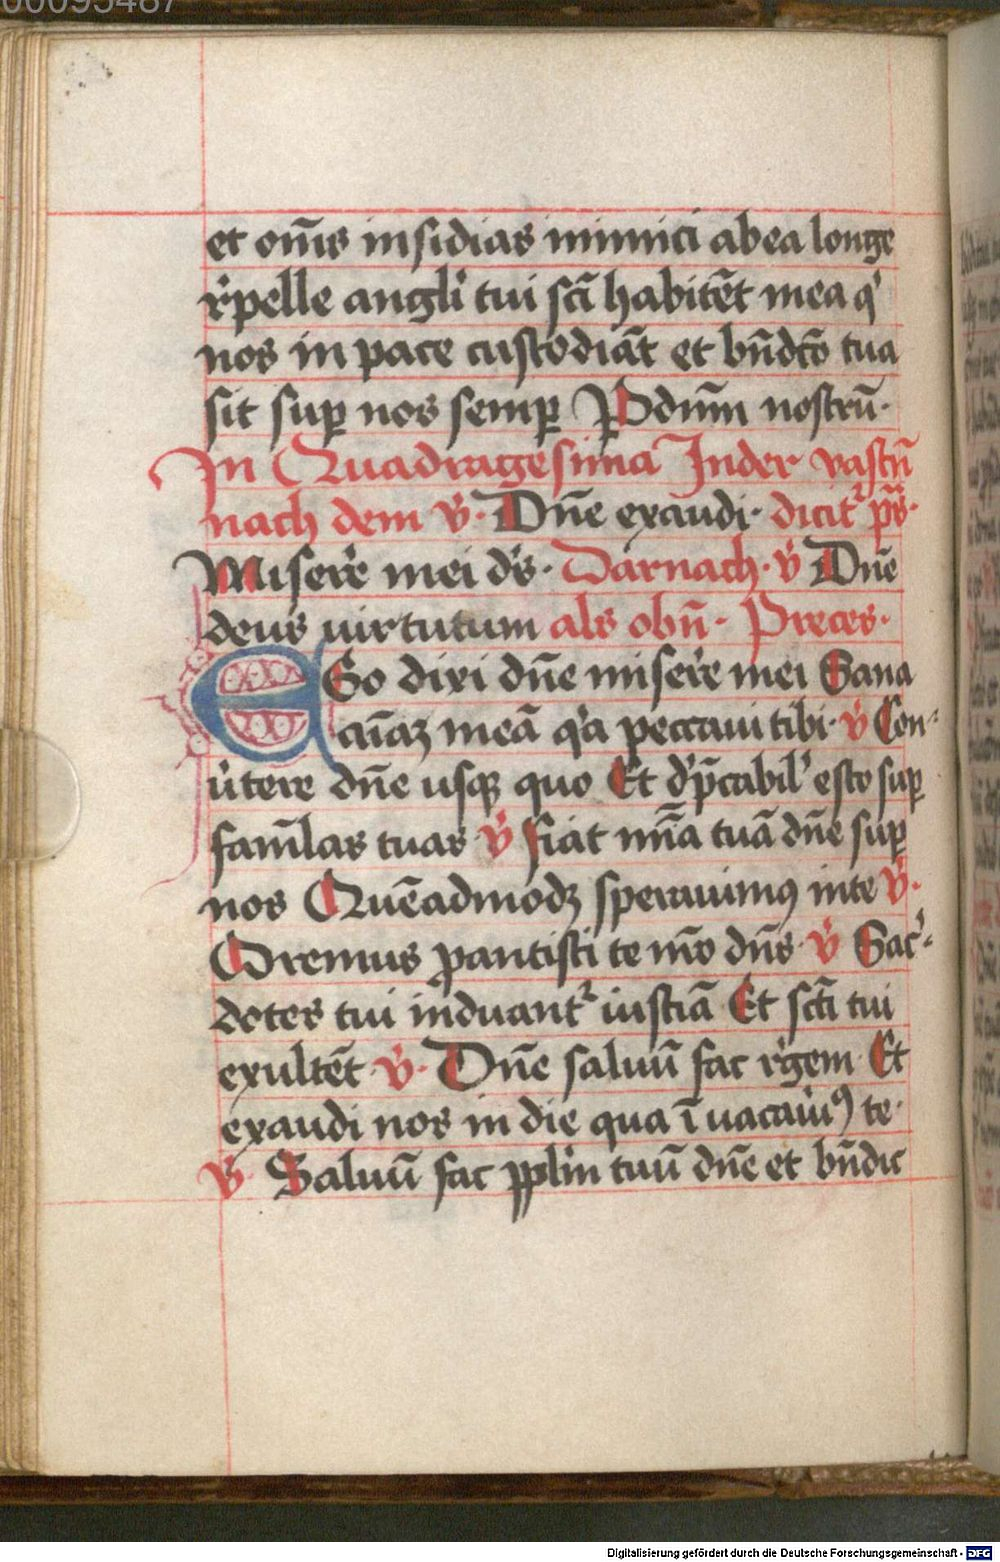 00095487
et om̄s insidias inimici ab ea longe
r̓pelle angli̓ tui sct̄i habitēt in ea q̓
nos in pace custodiāt et bn̄dctō tua
sit suꝑ nos semꝑ P dnm̄ nostrū·
In Quadragesima In der vastn̄
nach dem v̓· Dn̄e exaudi· dicit᷑ ps̄·
Miserer̓ mei ds̓· Darnach· v̓ Dn̄e
deus uirtutum als obn̄· Preces·
EGo dixi dn̄e miserer̓ mei Sana
aīaꝫ meā q̓a peccaui tibi· v̓ Con-
u̓tere dn̄e usqꝫ quo Et dp̄cabil̓ esto suꝑ
fam̄las tuas v̓ fiat mīa tuā dn̄e suꝑ
nos Quēadmodꝫ sperauimꝰ in te v̓·
Oremus ꝓ antisti te n̄ro dn̄s· v̓ Sac̓-
dotes tui induant᷑ iustiā Et sct̄i tui
exultēt· v̓· Dn̄e saluū fac r̓gem· Et
exaudi nos in die qua ī uocau̓iꝰ te·
v̓· Saluū fac pplm̄ tuū dn̄e et bn̄dic
Digitalisierung gefördert durch die Deutsche Forschungsgemeinschaft - DFG